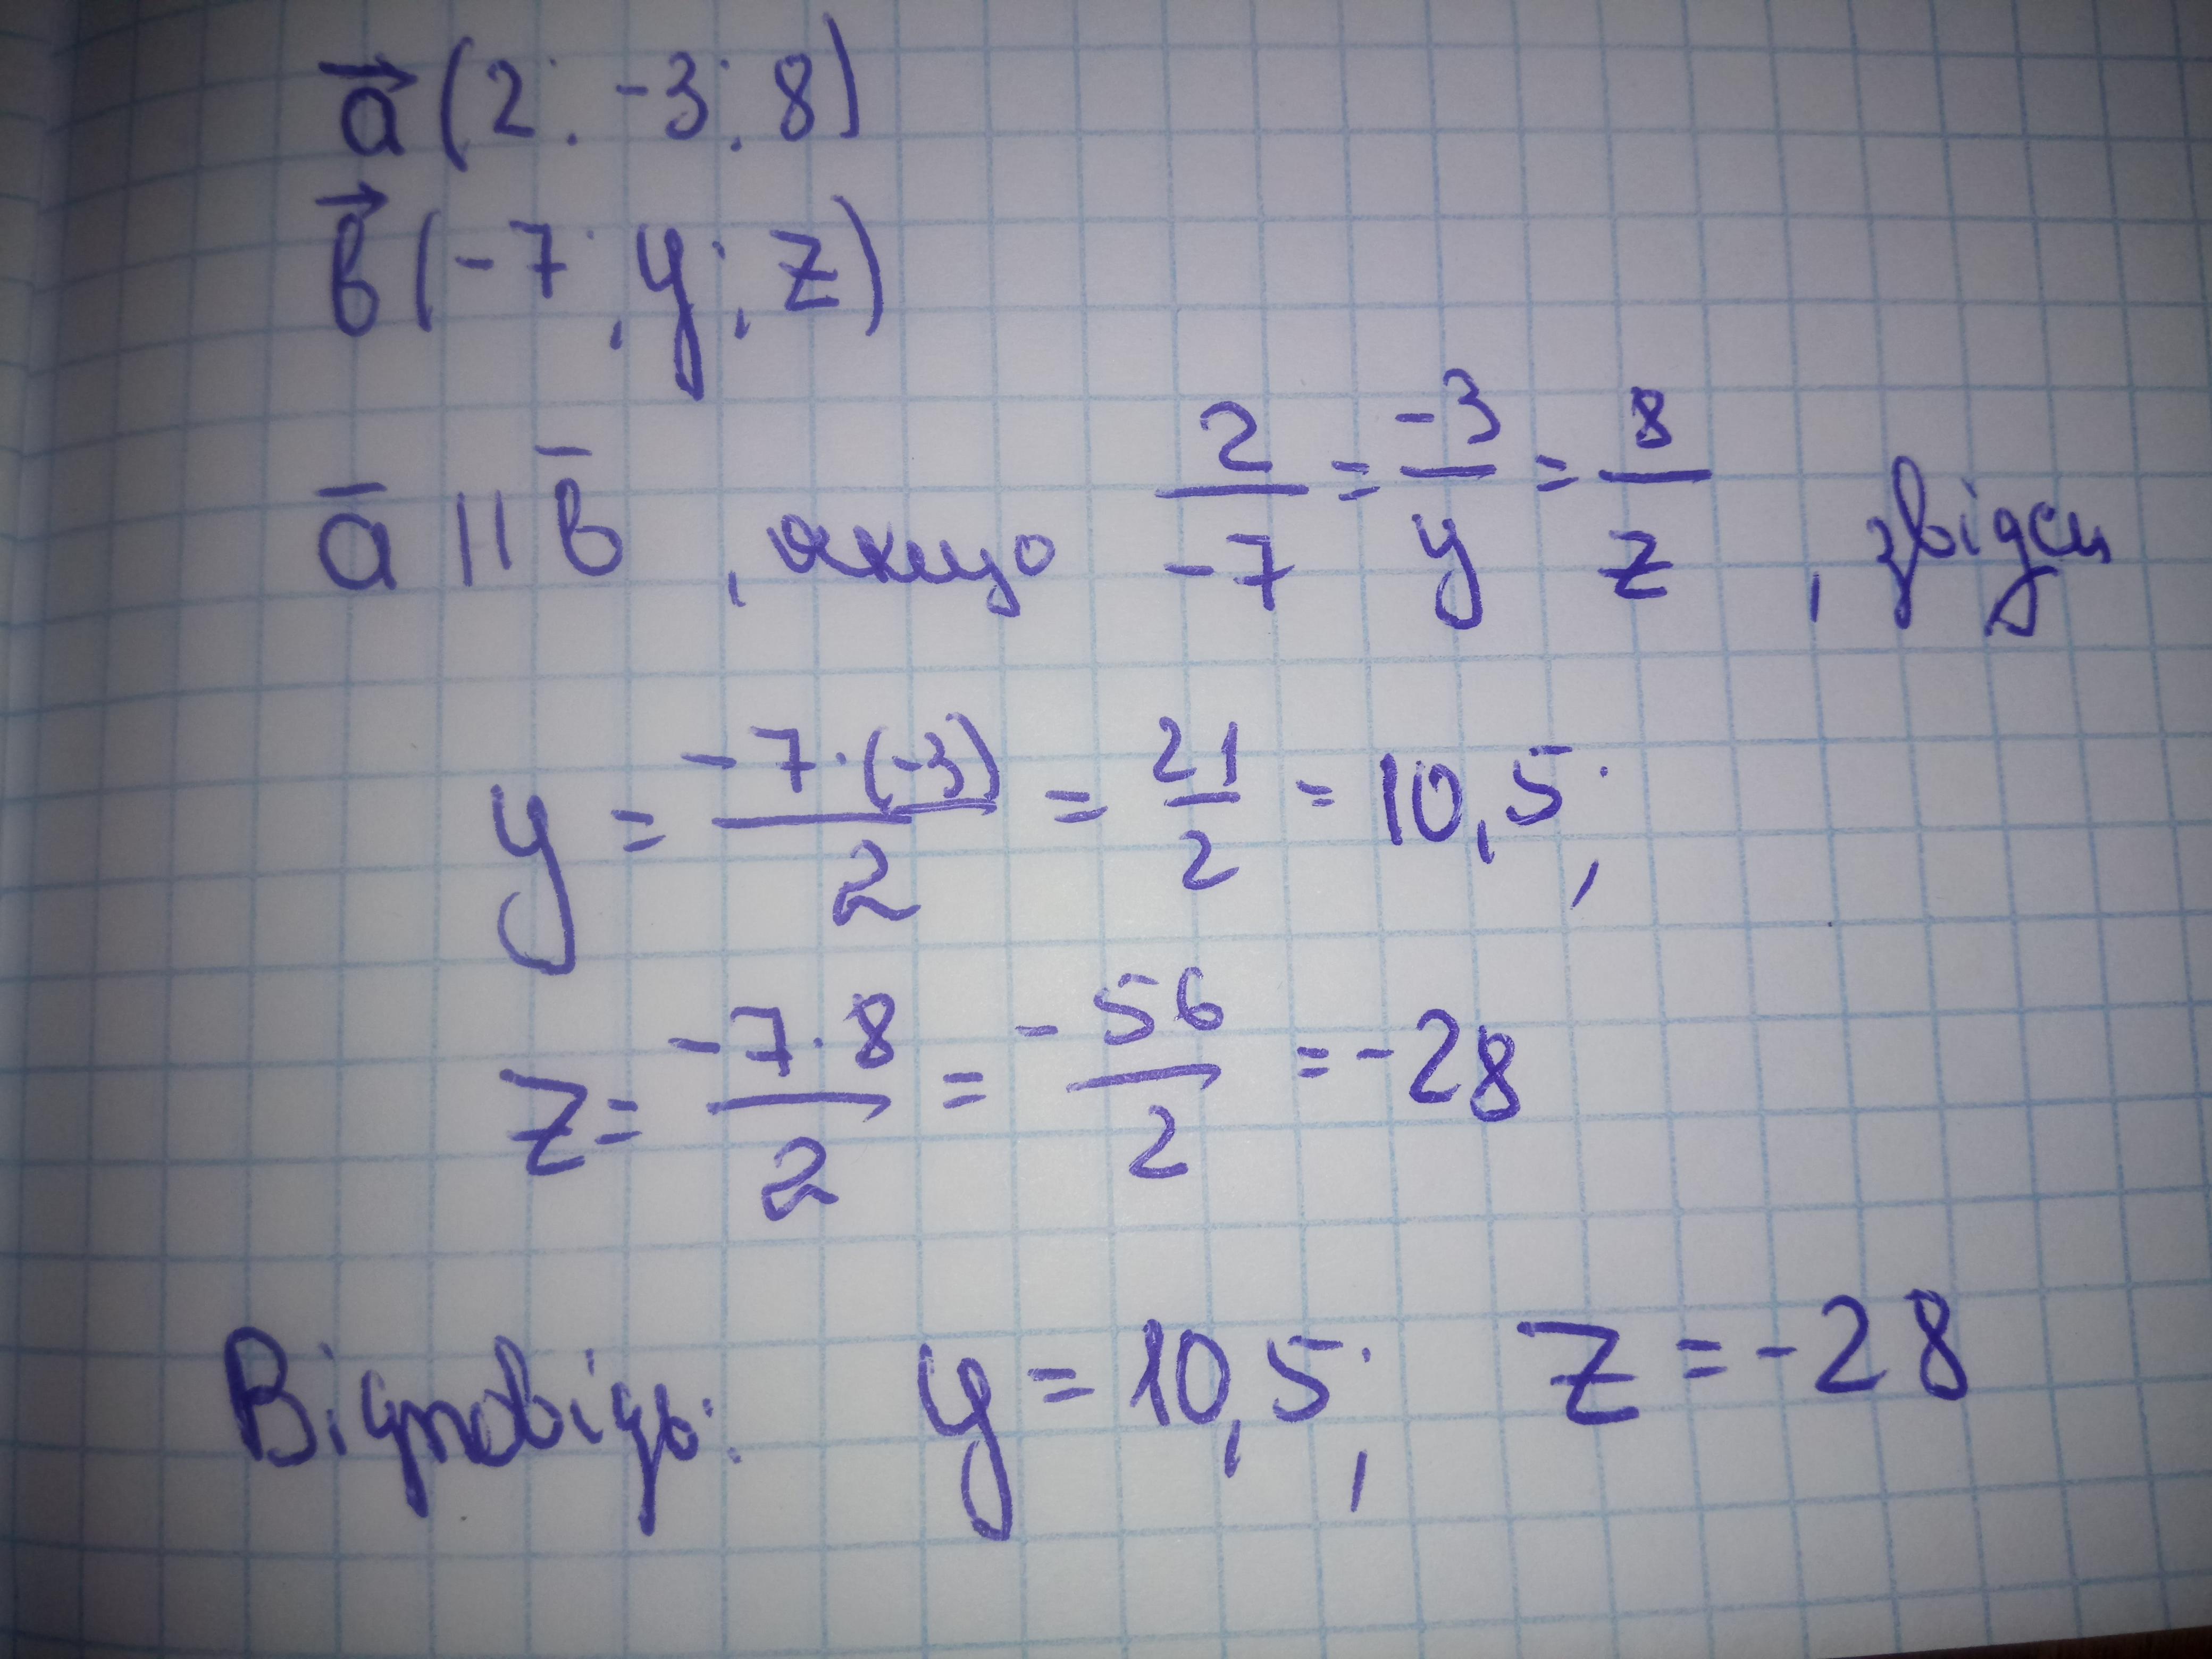 a⃗ (2; -3; 8)
b⃗ (-7; y; z)
a̅ || b̅, якщо 2/-7 = -3/y = 8/z, звідси
y = -7·(-3)/2 = 21/2 = 10,5;
z = -7·8/2 = -56/2 = -28
Відповідь: y = 10,5; z = -28